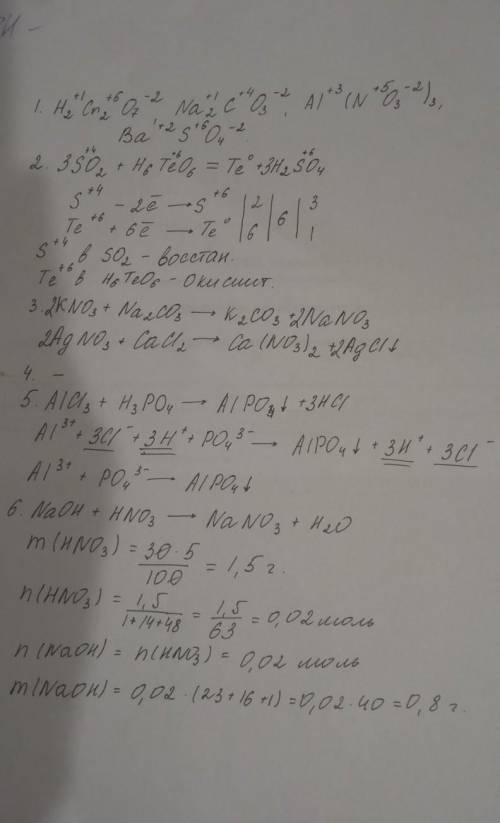 1. H₂⁺¹Cr₂⁺⁶O₇⁻² Na₂⁺¹C⁺⁴O₃⁻², Al⁺³(N⁺⁵O₃⁻²)₃,
Ba⁺²S⁺⁶O₄⁻².
2. 3S⁺⁴O₂ + H₆Te⁺⁶O₆ = Te⁰ + 3H₂S⁺⁶O₄
S⁺⁴ - 2ē → S⁺⁶ | 2 | 6 | 3
Te⁺⁶ + 6ē → Te⁰ | 6 | | 1
S⁺⁴ в SO₂ - восстан.
Te⁺⁶ в H₆TeO₆ - Окислит.
3. 2KNO₃ + Na₂CO₃ → K₂CO₃ + 2NaNO₃
2AgNO₃ + CaCl₂ → Ca(NO₃)₂ + 2AgCl↓
4. -
5. AlCl₃ + H₃PO₄ → AlPO₄↓ + 3HCl
Al³⁺ + 3Cl⁻ + 3H⁺ + PO₄³⁻ → AlPO₄↓ + 3H⁺ + 3Cl⁻
Al³⁺ + PO₄³⁻ → AlPO₄↓
6. NaOH + HNO₃ → NaNO₃ + H₂O
m(HNO₃) = 30·5/100 = 1,5 г.
n(HNO₃) = 1,5/1+14+48 = 1,5/63 = 0,02 моль
n(NaOH) = n(HNO₃) = 0,02 моль
m(NaOH) = 0,02·(23+16+1) = 0,02·40 = 0,8 г.